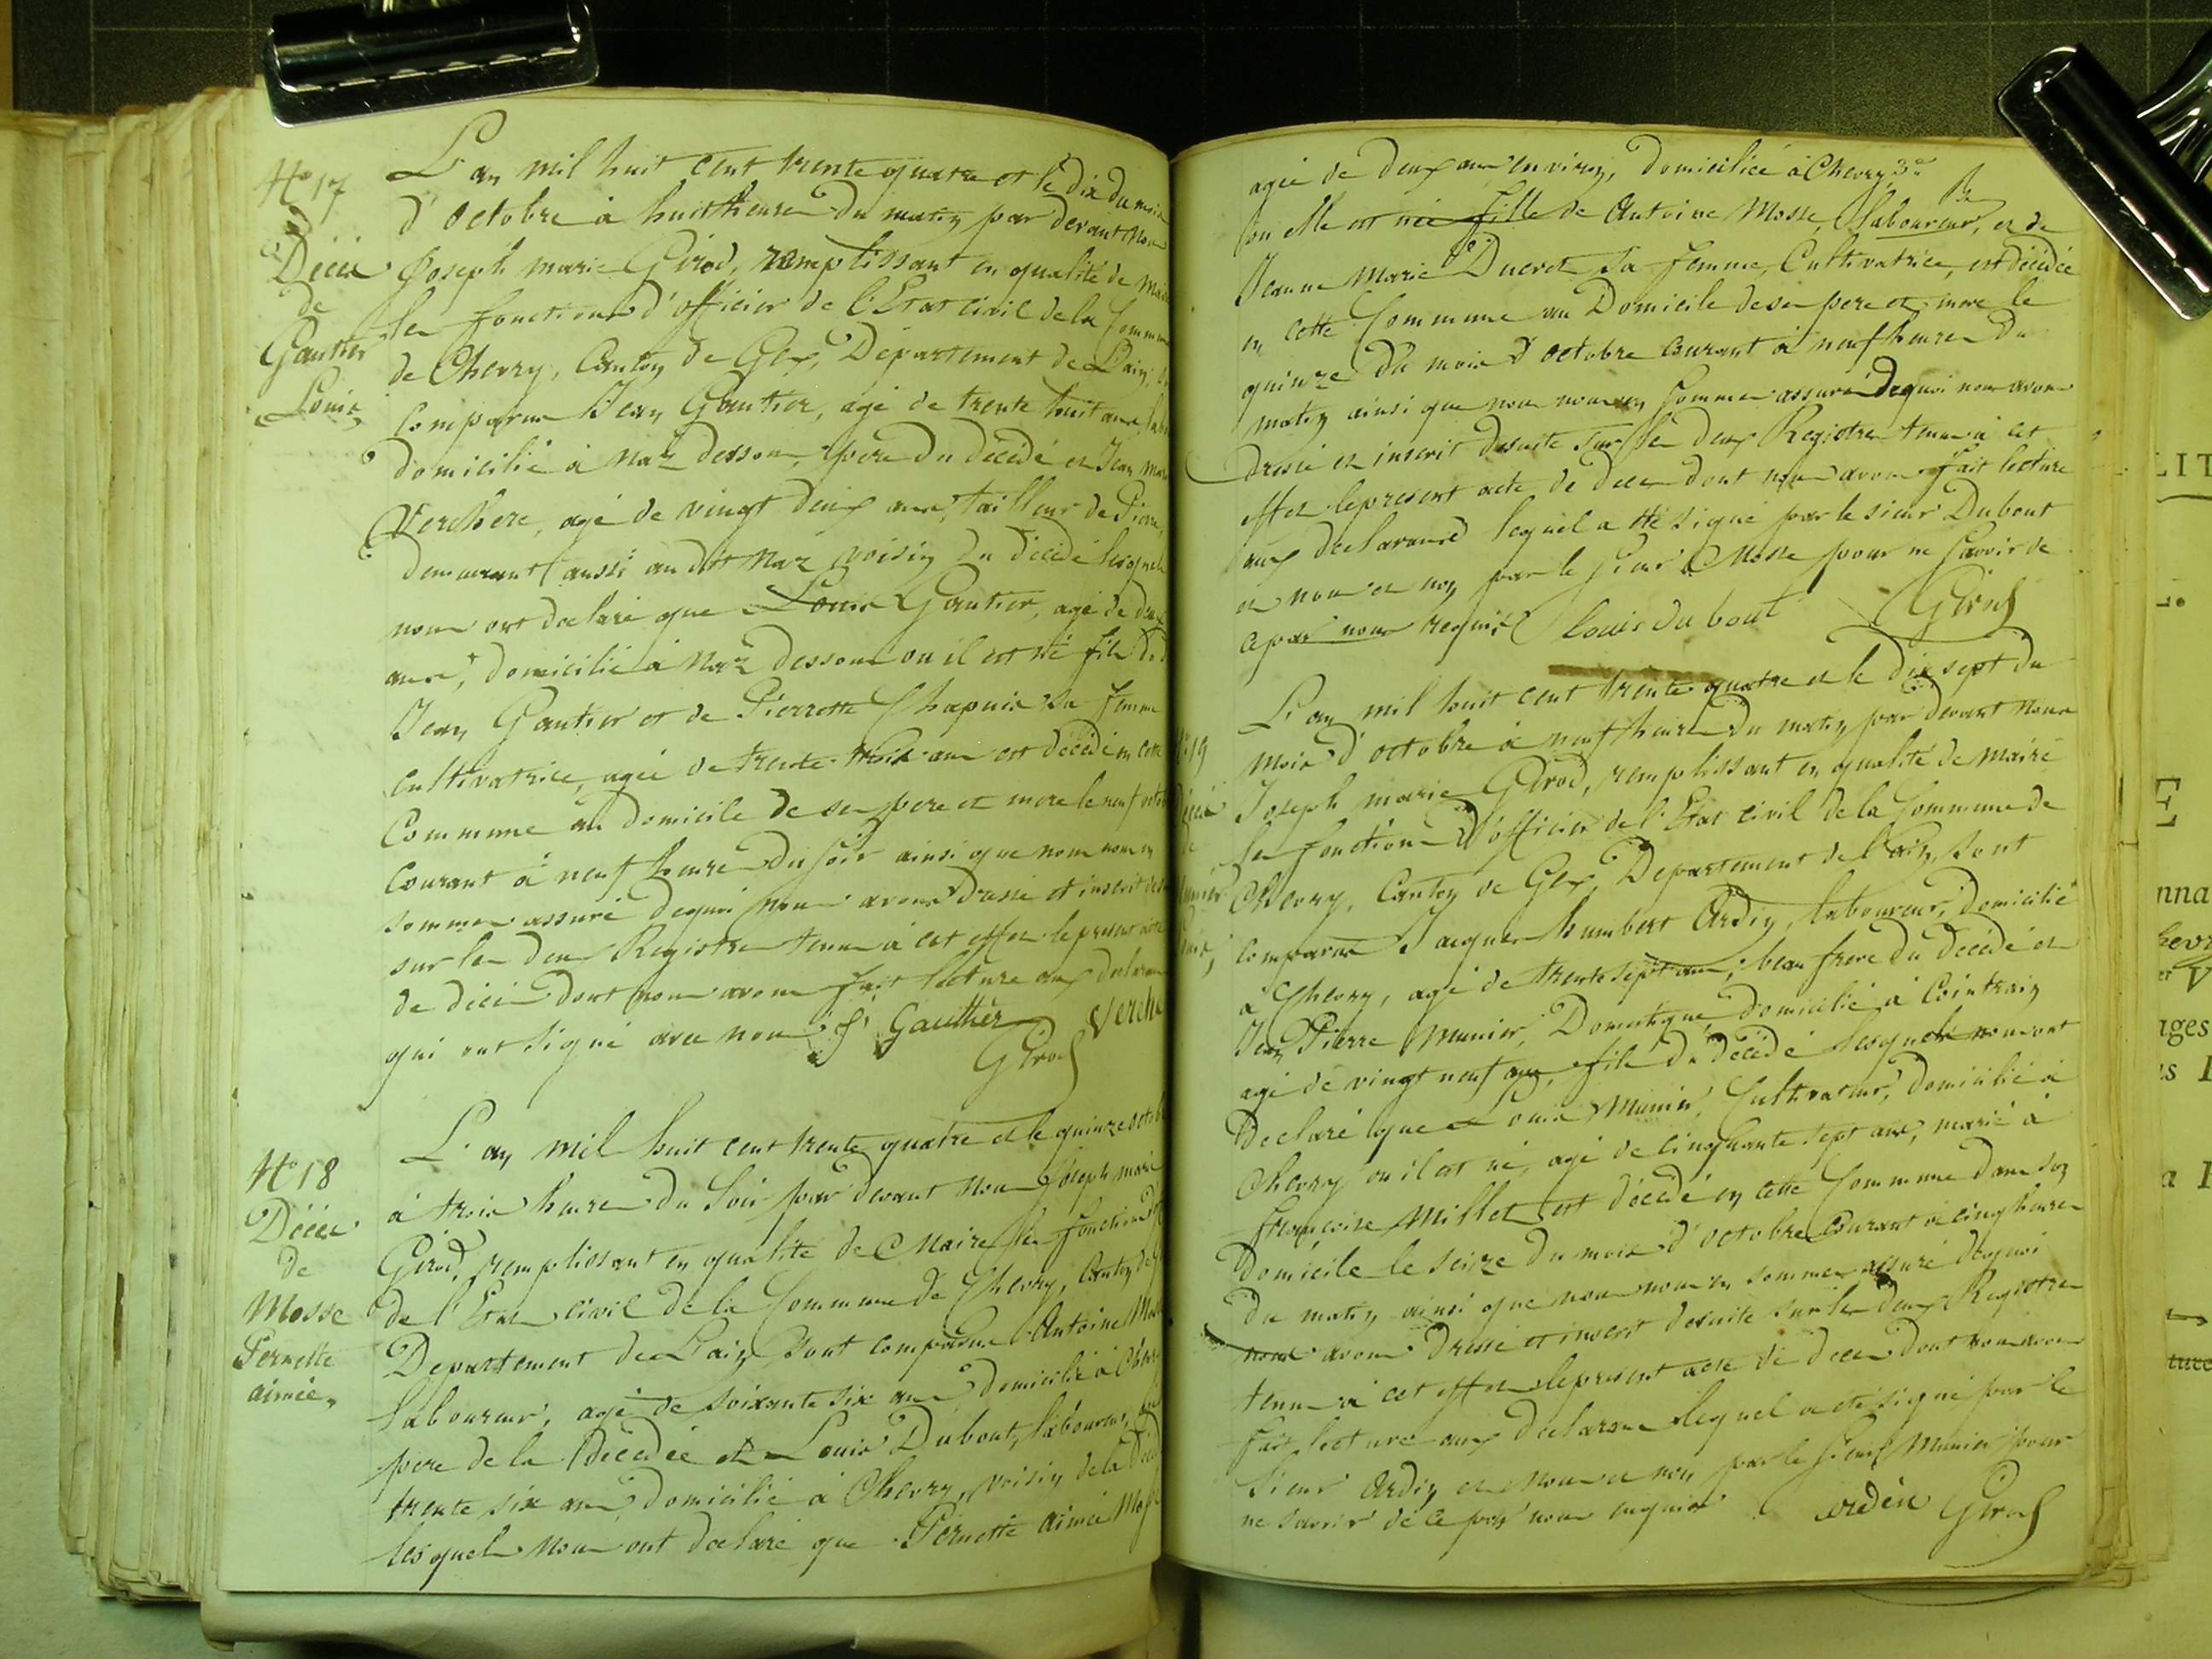 N° 17
Décès
de
Gautier
Louis
L'an mil huit cent trente quatre et le dix du mois
d'octobre à huit heures du matin par devant nous
Joseph marie Girod, remplissant en qualité de
les fonctions d'officier de l'Etat civil de la
de Chevry, Canton de Gex, Département de L'ain,
comparus Jean Gautier, agé de trente huit ans,
domicilié à Naz dessous, pere du décédé et Jean
Verchere, agé de vingt deux ans, tailleur de Pierre,
demeurant aussi au dit Naz voisin du décédé lesquels
nous ont declaré que Louis Gautier, agé de
ans, domicilié à Naz dessous ou il est né fils
Jean Gautier et de Pierrette Chapuis sa femme
cultivatrice, agée de trente trois ans est décédé en cette
Commune au domicile de ses pere et mere le neuf
courant à neuf heures du soir ainsi que nous nous en
sommes assuré dequoi nous avons dressé et inscrit
sur les deux Registres tenus à cet effet le present acte
de décès dont nous avons fait lecture aux
qui ont signé avec nous J Gauthier
Girod
N° 18
Décès
de
Mosse
Pernette
aimée,
L'an mil huit cent trente quatre et le quinze
à trois heures du soir par devant nous Joseph marie
Girod, remplissant en qualité de Maire les fonctions
de l'Etat civil de la Commune de Chevry, Canton de
Departement de L'ain sont comparus Antoine
laboureur, agé de soixante six ans, domicilié à
pere de la décédée et Louis Dubout, laboureur,
trente six ans, domicilié à Chevry, voisin de la
lesquels nous ont declaré que Pernette aimée
agée de deux ans environ, domiciliée à Chevry
ou elle est née fille de Antoine Mosse, laboureur, et de
Jeanne Marie Ducret sa femme, Cultivatrice, est décédée
en cette Commune au Domicile de ses pere et mere le
quinze du mois d'octobre courant à neuf heures du
matin ainsi que nous nous en sommes assuré dequoi nous avons
dressé et inscrit desuite sur les deux Registres tenus à cet
effet le present acte de décès dont nous avons fait lecture
aux declarans lequel a été signé par le sieur Dubout
et nous et non par le sieur Mosse pour ne savoir de
ce par nous requis Louis du bout Girod
L'an mil huit cent trente quatre et le dix sept du
mois d'octobre à neuf heures du matin par devant nous
Joseph marie Girod, remplissant en qualité de maire
les fonctions d'officier de l'Etat civil de la Commune de
Chevry, Canton de Gex, Departement de l'ain, sont
comparus Jacques humbert Ardin, laboureur, domicilié
à Chevry, agé de trente sept ans, beau frere du décédé et
Jean Pierre Munier, Domestique, domicilié à Cointrin
agé de vingt neuf ans, fils du décédé lesquels nous ont
declaré que Louis Munier, Cultivateur, domicilié à
Chevry ou il est né, agé de cinquante sept ans, marié à
françoise Millet est décédé en cette Commune dans son
domicile le seize du mois d'octobre courant à cinq heures
du matin ainsi que nous nous en sommes assuré dequoi
nous avons dressé et inscrit desuite sur les deux Registres
tenus à cet effet le present acte de décès dont nous avons
fait lecture aux declarans lequel a été signé par le
sieur Ardin et nous et non par le sieur Munier pour
ne savoir de ce par nous enquis ardin Girod